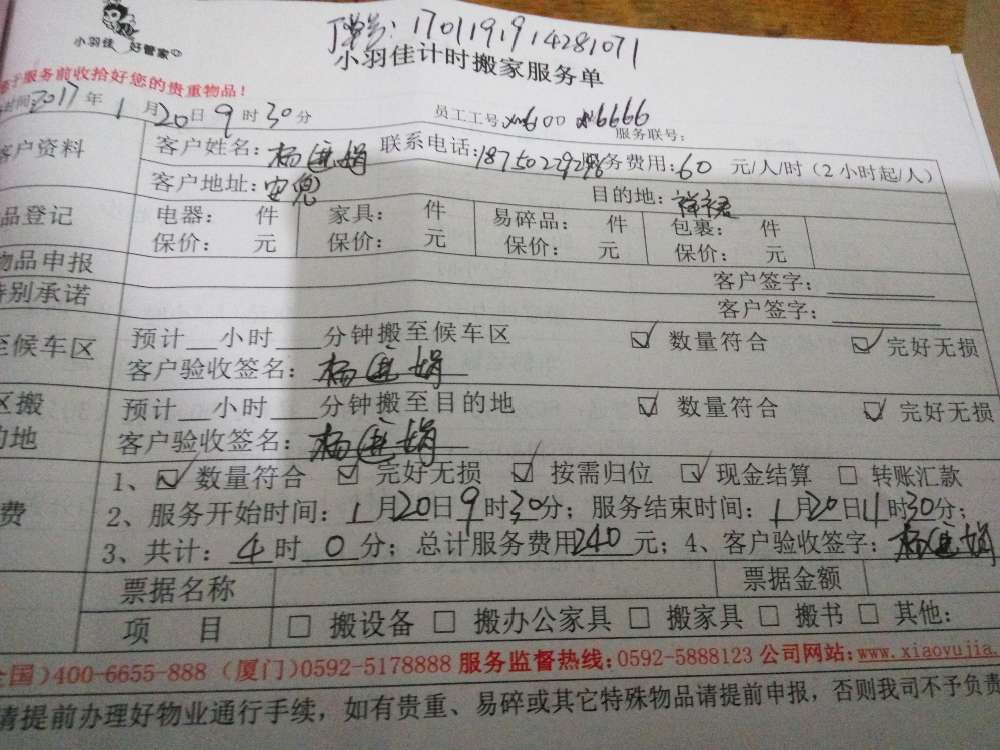 小羽佳 好管家
单号：1701191914281071
小羽佳计时搬家服务单
服务前收拾好您的贵重物品！
时间：2017年1月20日9时30分 员工工号 xm600 xm6666 服务联号：
客户资料 客户姓名：杨 娟 联系电话：18750229296 服务费用：60 元/人/时（2小时起/人）
客户地址：安兜 目的地：
品登记 电器： 件 家具： 件 易碎品： 件 包裹： 件
保价： 元 保价： 元 保价： 元 保价： 元
物品申报 客户签字：
特别承诺 客户签字：
至候车区 预计__小时____分钟搬至候车区 ☑ 数量符合 ☑ 完好无损
客户验收签名：杨 娟
区搬 预计__小时____分钟搬至目的地 ☑ 数量符合 ☑ 完好无损
的地 客户验收签名：杨 娟
1、☑ 数量符合 ☑ 完好无损 ☑ 按需归位 ☑ 现金结算 □ 转账汇款
费 2、服务开始时间：1月20日9时30分；服务结束时间：1月20日11时30分；
3、共计：4时0分；总计服务费用240元；4、客户验收签字：杨 娟
票据名称 票据金额
项 目 □ 搬设备 □ 搬办公家具 □ 搬家具 □ 搬书 □ 其他：
全国）400-6655-888（厦门）0592-5178888 服务监督热线：0592-5888123 公司网站：www.xiaoyujia.
请提前办理好物业通行手续，如有贵重、易碎或其它特殊物品请提前申报，否则我司不予负责